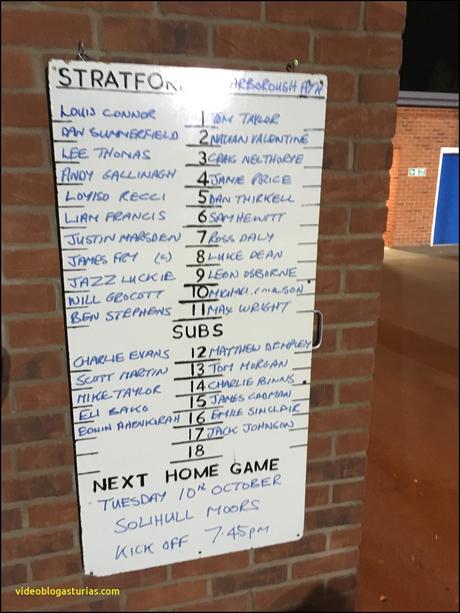 STRATFORD SCARBOROUGH ATH
LOUIS CONNOR 1 TOM TAYLOR
DAN SUMMERFIELD 2 NATHAN VALENTINE
LEE THOMAS 3 CRAIG NELTHORPE
ANDY GALLINAGH 4 JAMIE PRICE
LOYISO RECCI 5 DAN THIRKELL
LIAM FRANCIS 6 SAM HEWITT
JUSTIN MARSDEN 7 ROSS DALY
JAMES FRY (c) 8 LUKE DEAN
JAZZ LUCKIE 9 LEON OSBORNE
WILL GROCOTT 10 MICHAEL
BEN STEPHENS 11 MAX WRIGHT
SUBS
CHARLIE EVANS 12 MATTHEW DEMPLEY
SCOTT MARTIN 13 TOM MORGAN
MIKE TAYLOR 14 CHARLIE BINNS
ELI BAKO 15 JAMES CADMAN
EDWIN AHENKORAH 16 EMILE SINCLAIR
17 JACK JOHNSON
18
NEXT HOME GAME
TUESDAY 10TH OCTOBER
SOLIHULL MOORS
KICK OFF 7.45PM
videoblogasturias.com